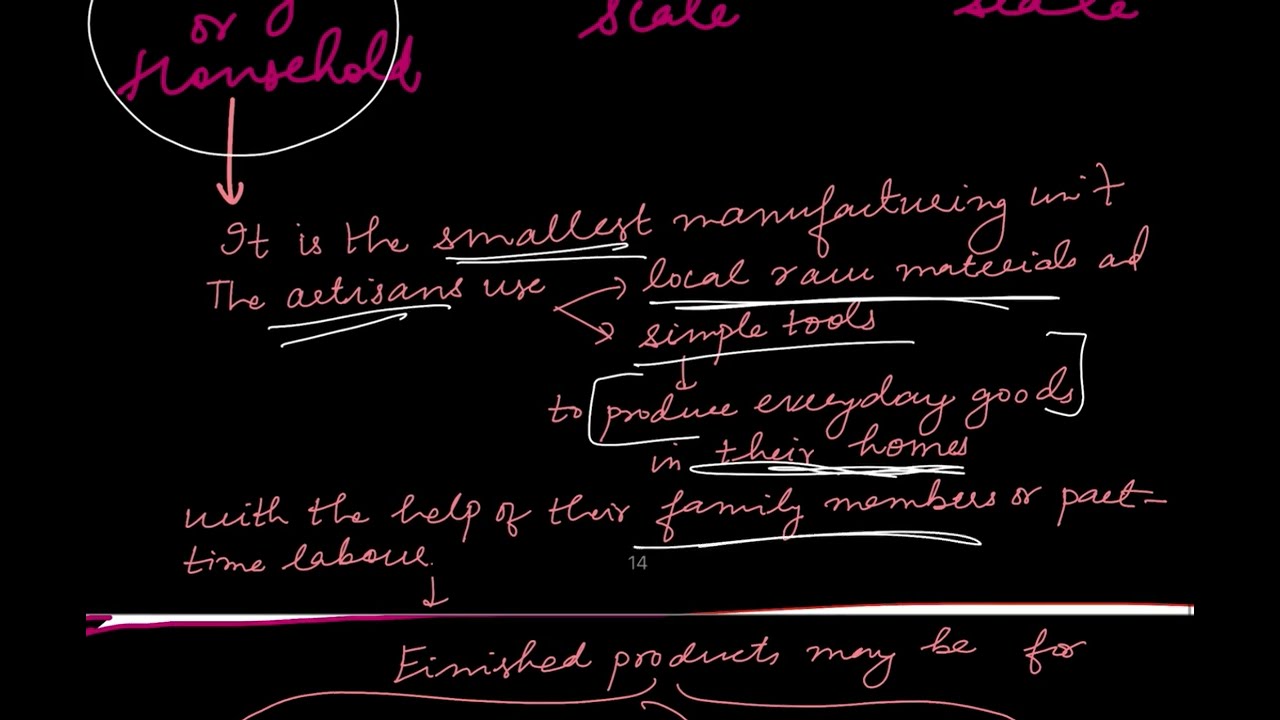 or
Household
Scale
Scale
It is the smallest manufacturing unit
The artisans use local raw materials ad
simple tools
to produce everyday goods
in their homes
with the help of their family members or part-
time labour.
14
Finished products may be for